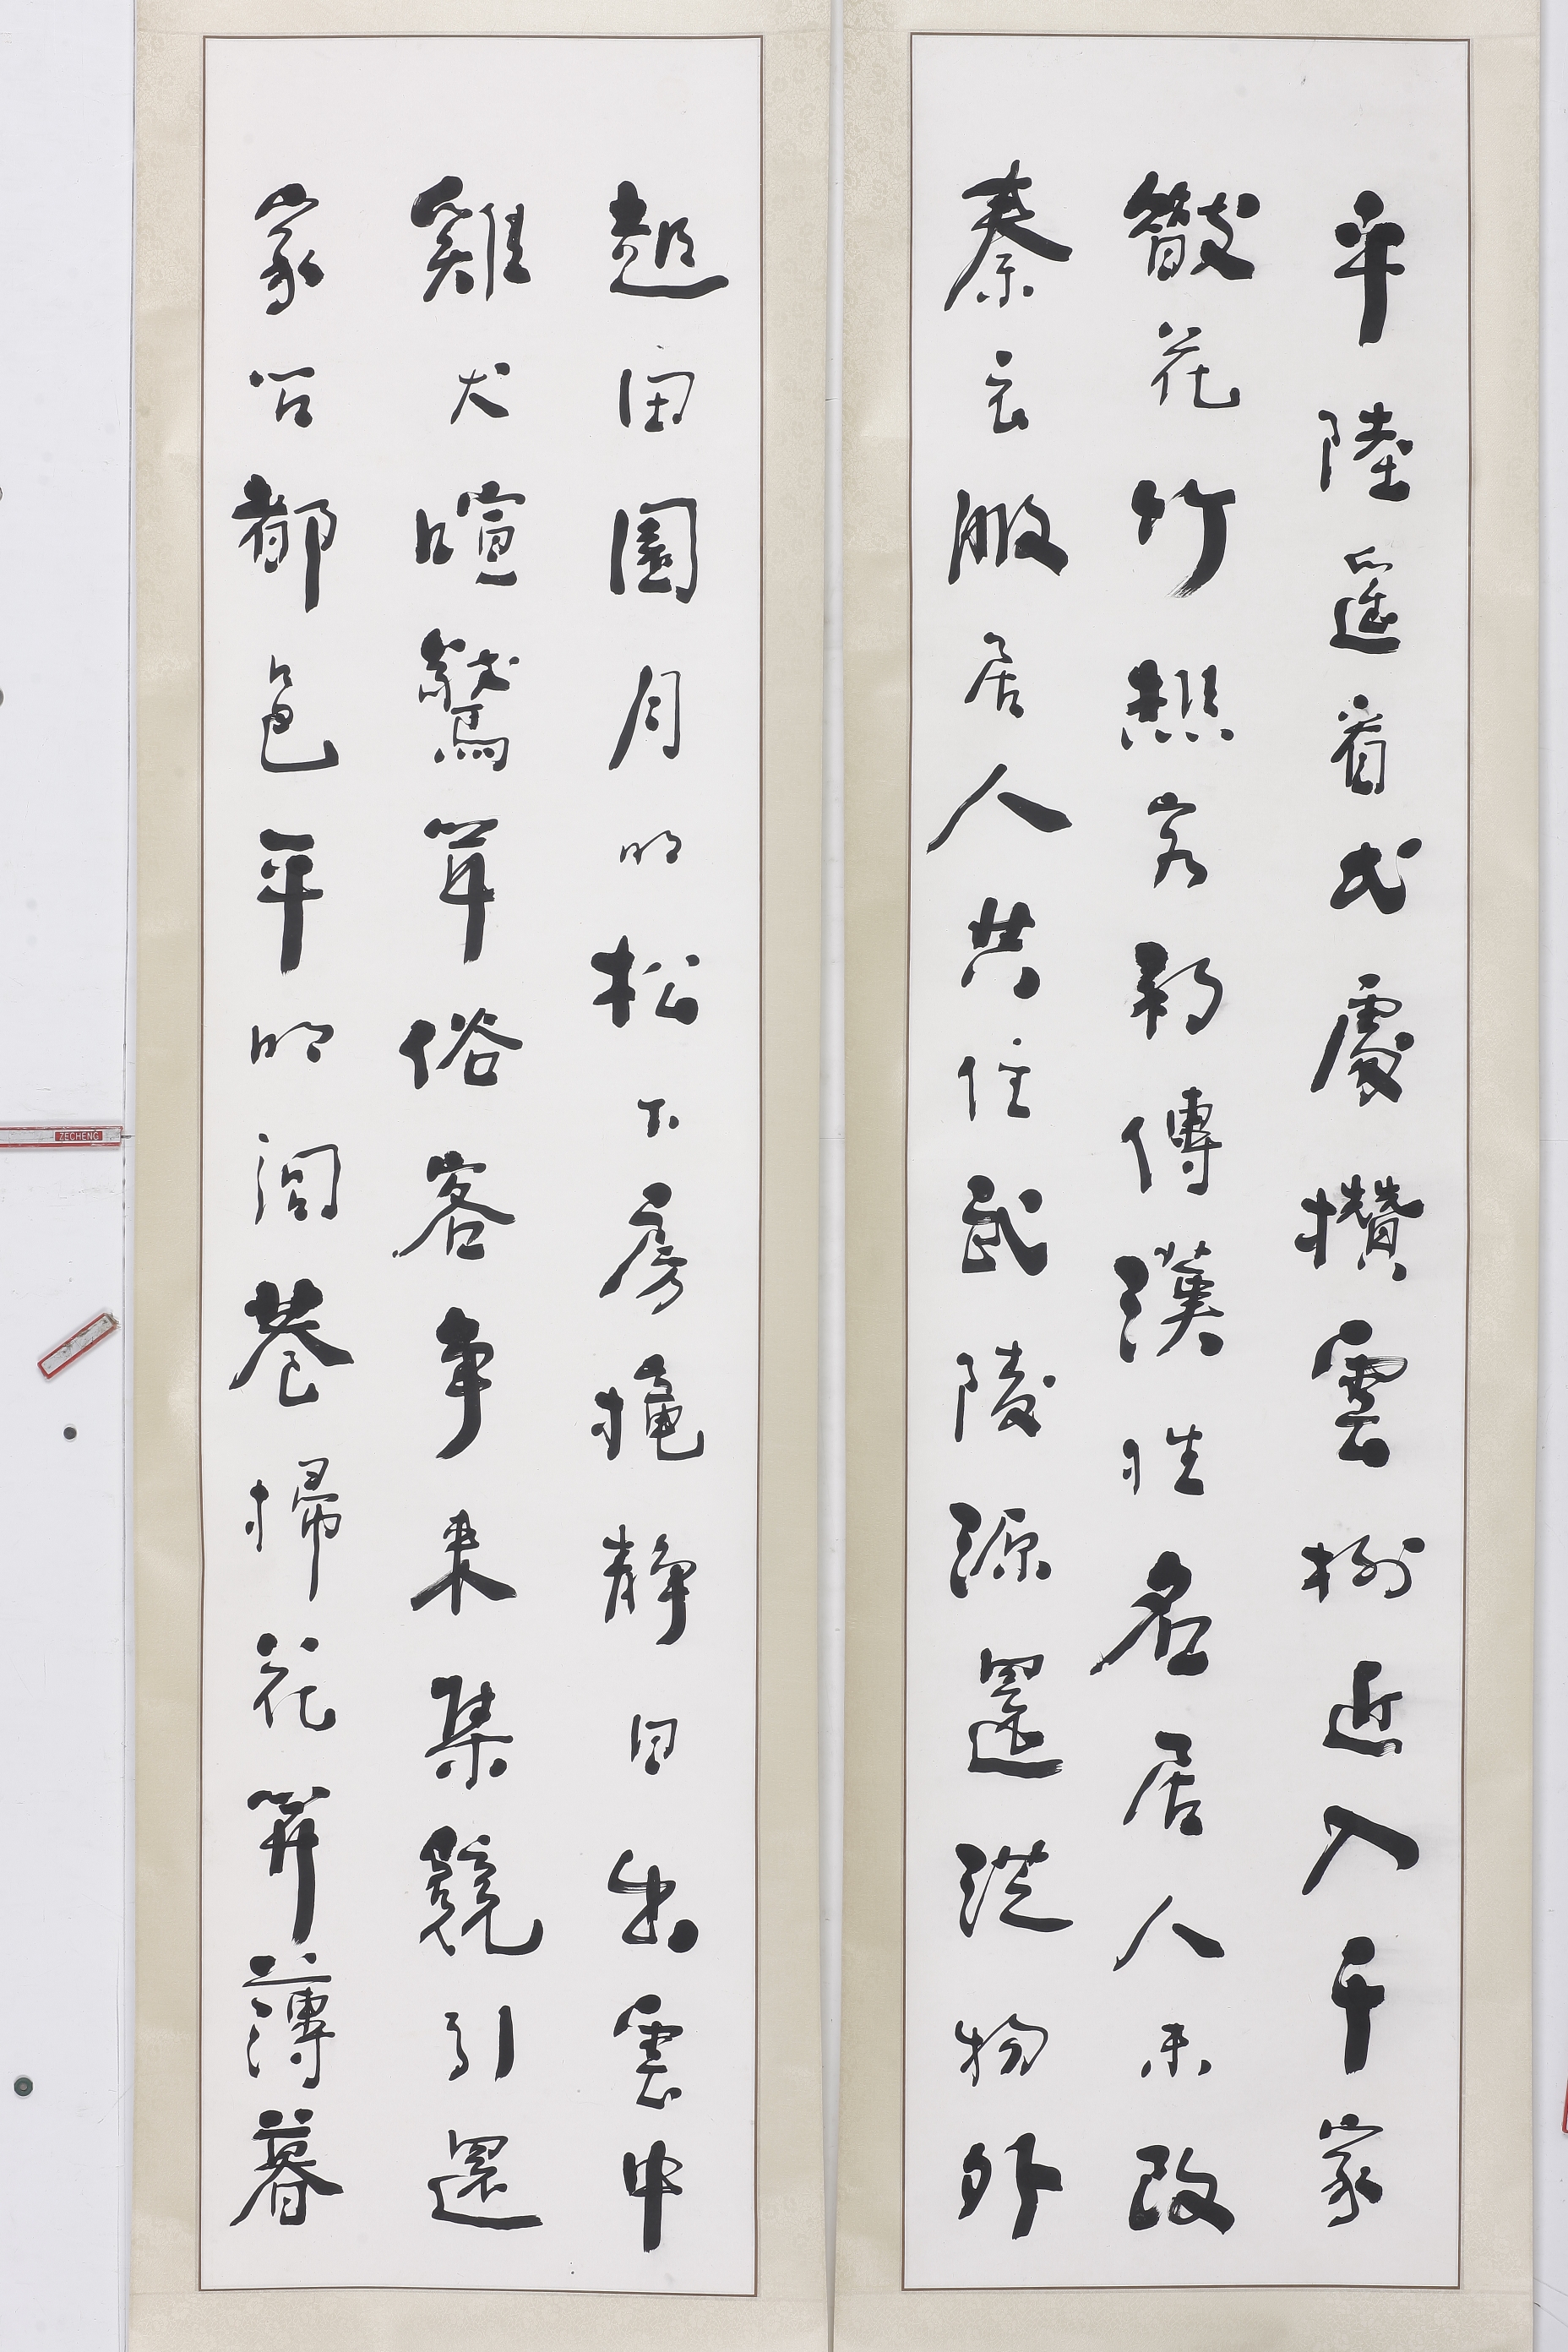 平陸遙看弌處攢雲樹近入千家
散花竹樵客初傳漢姓名居人未改
秦衣服居人共住武陵源還從物外
起田園月明松下房櫳靜日出雲中
雞犬喧驚聞俗客爭來集競引還
家問都邑平明閭巷掃花開薄暮
ZECHENG